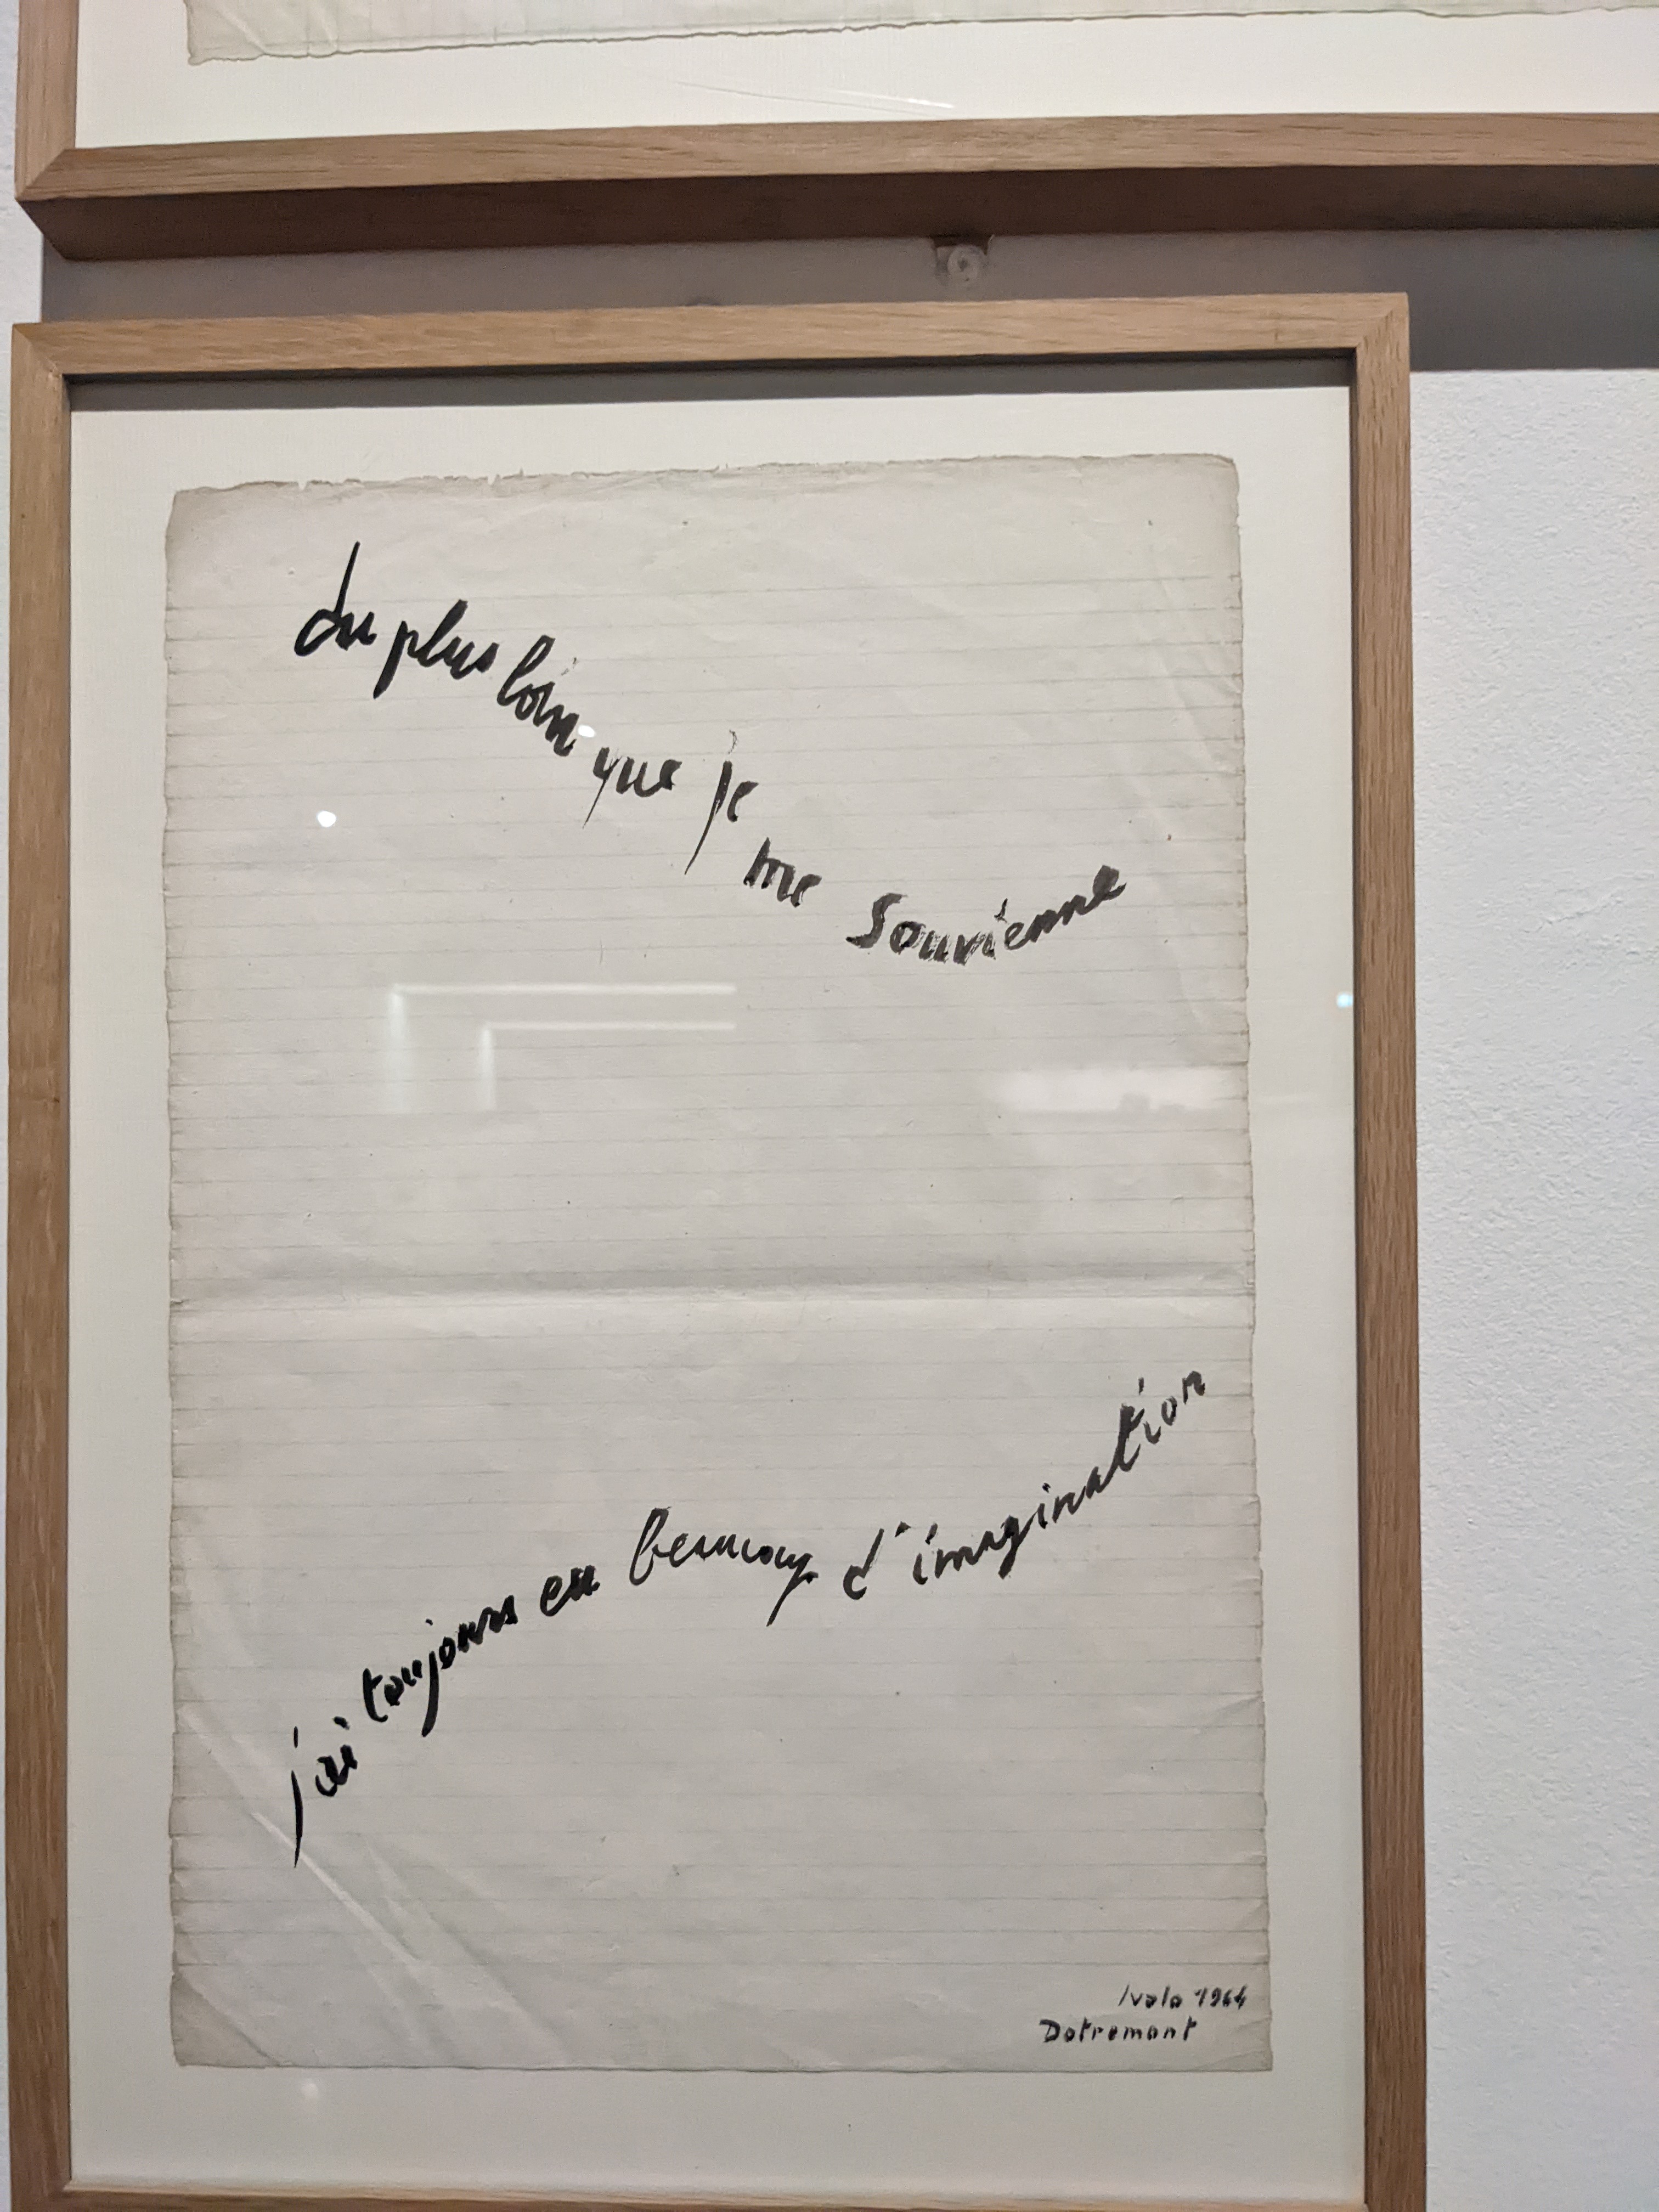 du plus loin que je me souvienne
j'ai toujours eu beaucoup d'imagination
Ivalo 1964
Dotremont